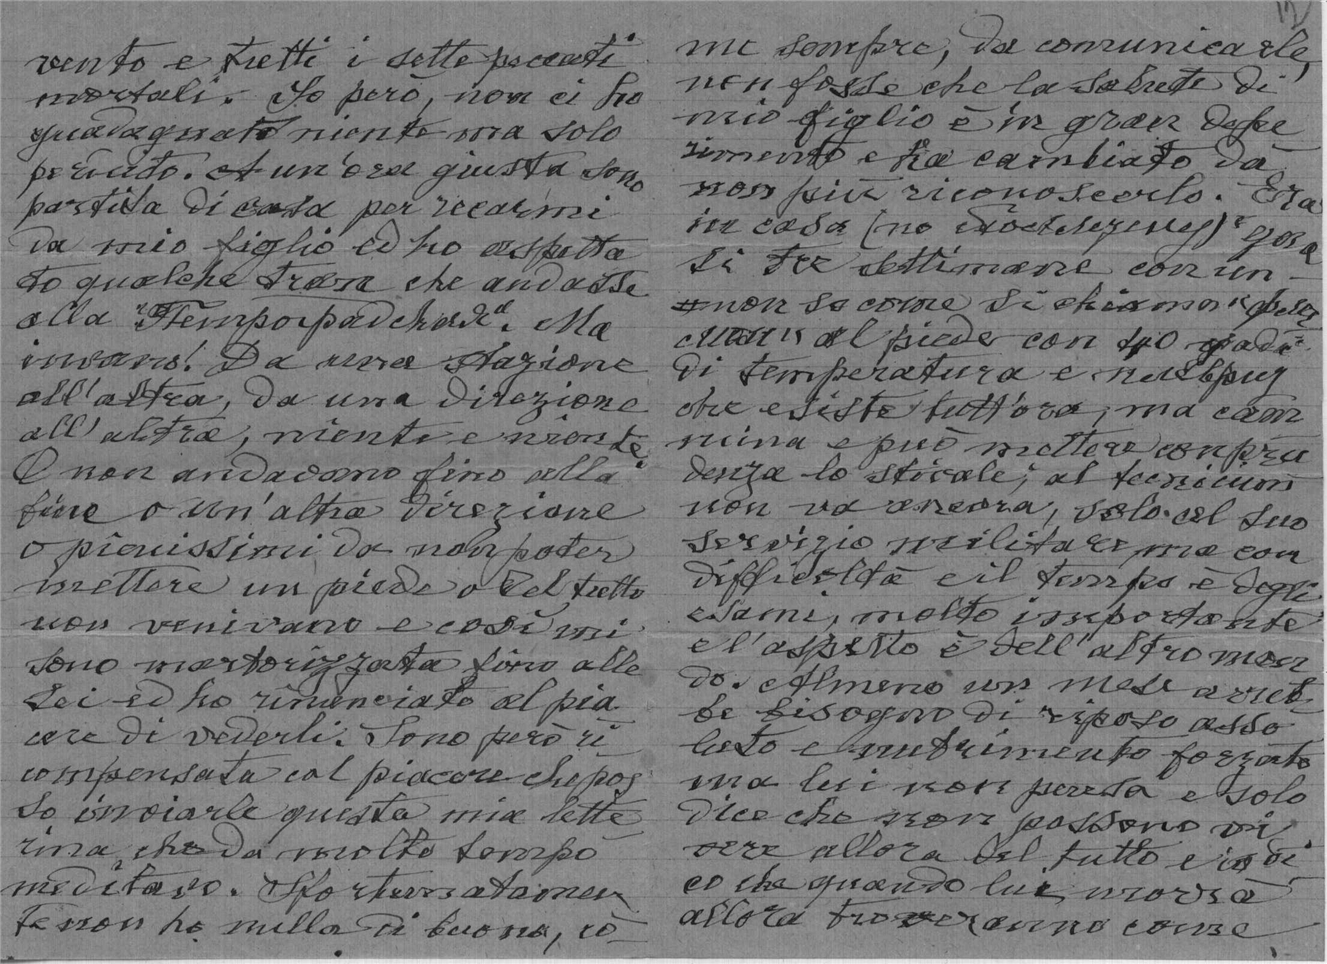 vento e tutti i sette peccati
mortali. Io però, non ci ho
guadagnato niente ma solo
perduto. A un'ora giusta sono
partita di casa per recarmi
da mio figlio ed ho aspetta
to qualche tram che andasse
alla
invano! Da una stazione
all'altra, da una direzione
all'altra, niente e niente.
O non andavano fino alla
fine o un'altra direzione
o pienissimi da non poter
mettere un piede o del tutto
non venivano e così mi
sono martorizzata fino alle
sei ed ho rinunciato al pia
cere di vederli. Sono però ri
compensata col piacere che pos
so inviarle questa mia lette
rina, che da molto tempo
meditavo. Sfortunatamen
te non ho nulla di buono, co
me sempre, da comunicarle,
non fosse che la salute di
mio figlio è in gran depe
rimento e ha cambiato da
non più riconoscerlo. Era
in casa (no
di tre settimane con un
non so come si chiama
al piede con 40 gradi
di temperatura e
che esiste tutt'ora, ma cam
mina e può mettere con pru
denza lo stivale, al
non va ancora, solo al suo
servizio militare, ma con
difficoltà e il tempo è degli
esami, molto importante
e l'aspetto è dell'altro mon
do. Almeno un mese avreb
be bisogno di riposo asso
luto e nutrimento forzato
ma lui non pensa e solo
dice che non possono vi
vere allora del tutto e io di
co che quando lui morrà
allora troveranno come